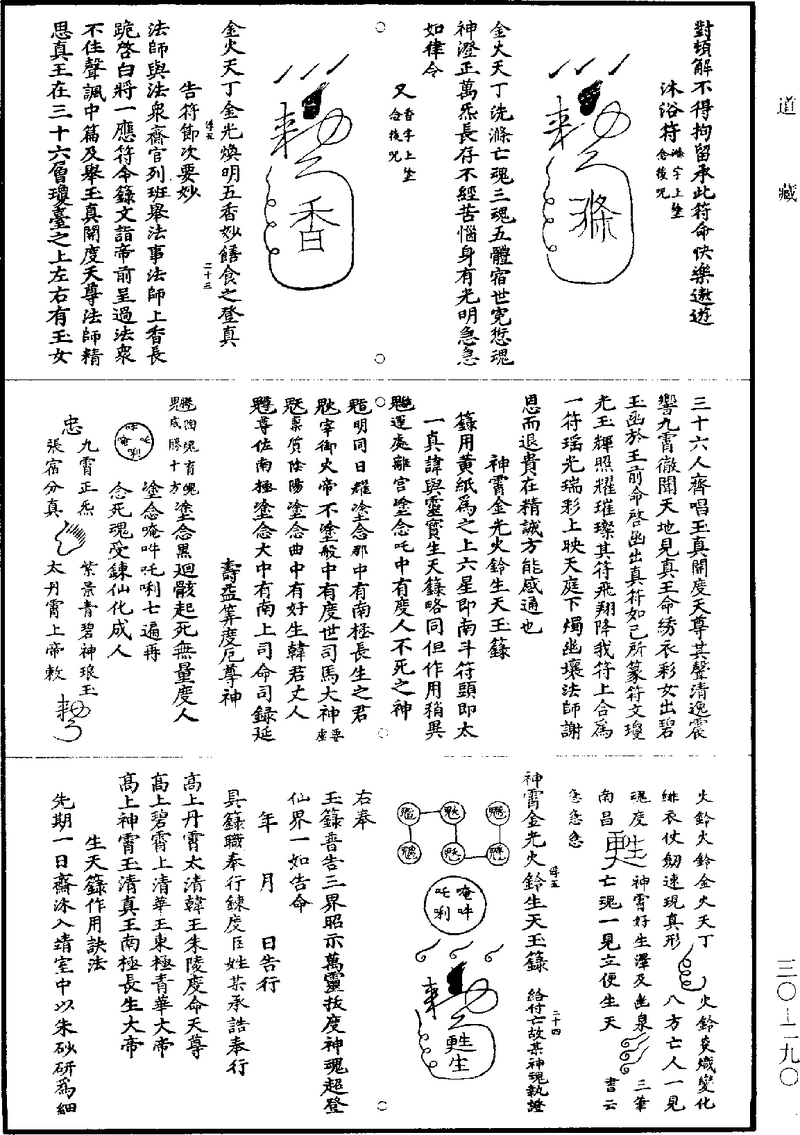 道藏
三〇—二九〇
對頓解不得拘留承此符命快樂遨遊
沐浴符滌字上塗念後咒
滌
金火天丁洗滌亡魂三魂五體宿世冤愆魂
神澄正萬炁長存不經苦惱身有光明急急
如律令
又香字上塗念後咒
香
金火天丁金光煥明五香妙饍食之登真
告符節次要妙
二十三
法師與法衆齋官列班舉法事法師上香長
跪啓白將一應符命錄文詣帝前呈過法衆
不住聲諷中篇及舉玉真開度天尊法師精
思真王在三十六層瓊臺之上左右有玉女
三十六人齊唱玉真開度天尊其聲清逸震
響九霄徹聞天地見真王命綉衣彩女出碧
玉函於王前命啓函出真符如己所篆符文瓊
光玉輝照耀璀璨其符飛翔降我符上合爲
一符瑶光瑞彩上映天庭下燭幽壤法師謝
恩而退貴在精誠方能感通也
神霄金光火鈴生天玉籙
籙用黄紙爲之上六星即南斗符頭即太
一真諱與靈寶生天籙略同但作用稍異
運處離宫塗念吒中有度人不死之神
明同日耀塗念那中有南極長生之君
宰御火帝不塗般中有度世司馬大神要塗
禀質陰陽塗念曲中有好生韓君丈人
尊佐南極塗念大中有南上司命司録延
壽益筭度厄尊神
陶魂育魄成勝十方塗念黑迴骸起死無量度人
塗念唵吽吒唎七遍再
念死魂受鍊仙化成人
九霄正炁 紫景青碧神琅玉
張宿分真 太丹霄上帝敕
火鈴火鈴金火天丁 火鈴炎熾變化
緋衣仗劒速現真形 八方亡人一見
魂度 甦 神霄好生澤及幽泉 三筆
南昌 亡魂一見立便生天 書云
急急急
神霄金光火鈴生天玉籙 給付亡故某神魂執證
二十四
唵吽吒唎
甦生
右奉
玉籙普告三界昭示萬靈拔度神魂超登
仙界一如告命
年 月 日告行
具籙職奉行鍊度臣姓某承誥奉行
高上丹霄太清韓王朱陵度命天尊
高上碧霄上清華王東極青華大帝
高上神霄玉清真王南極長生大帝
生天籙作用訣法
先期一日齋沐入靖室中以朱砂研爲細